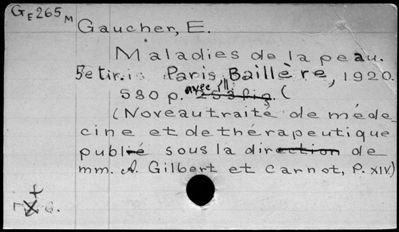 GE265M
Gaucher, E.
Maladies de la peau.
5e tir. Paris, Baillère, 1920.
580 p. avec ill. (
(Noveau traité de méde
cine et de thérapeutique
publié sous la direction de
mm. A. Gilbert et Carnot, P. XIV)